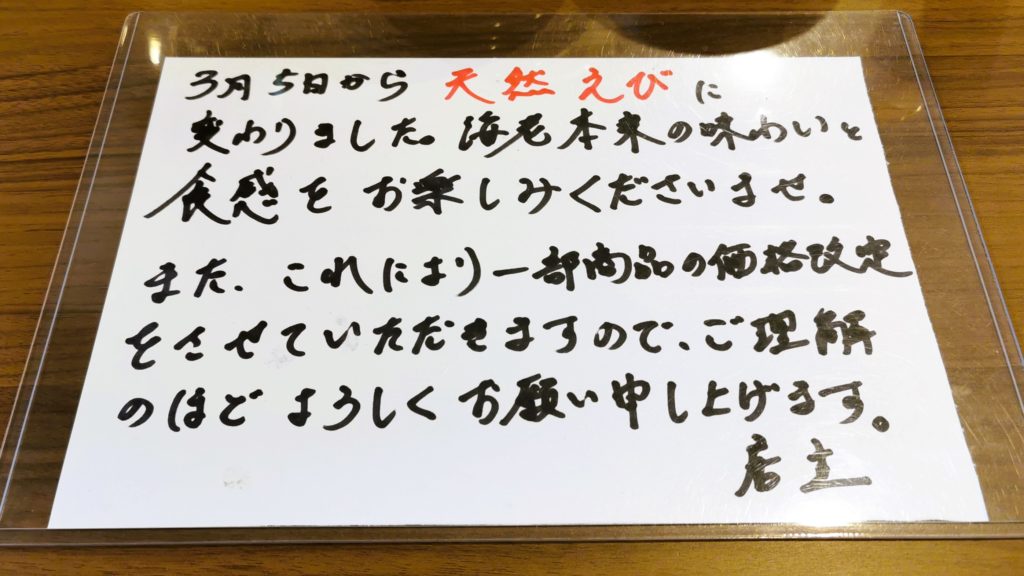 3月5日から 天然えびに
変わりました。海老本来の味わいと
食感を お楽しみくださいませ。
また、これにより一部商品の価格改定
をさせていただきますので、ご理解
のほど よろしくお願い申し上げます。
店主